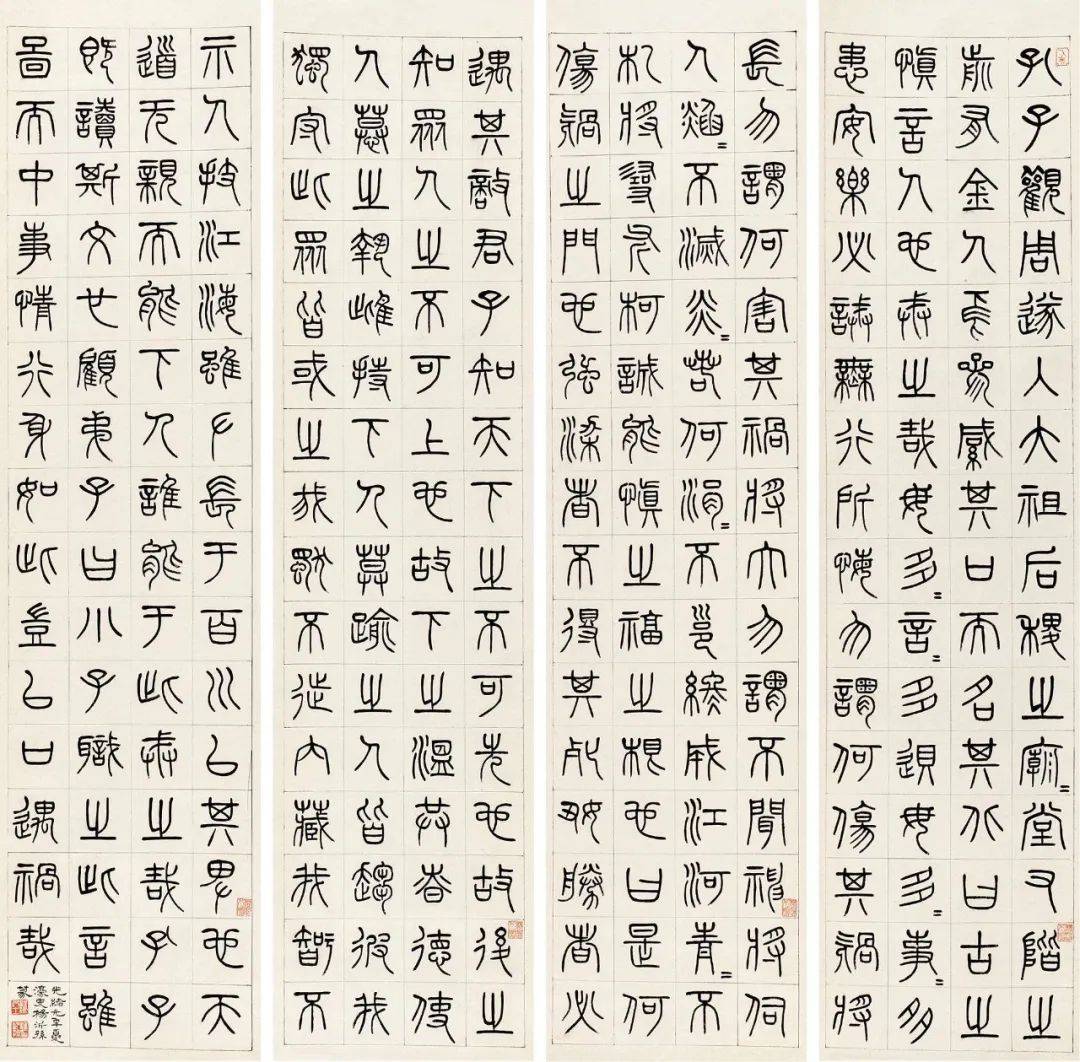 孔子觀周遂入大祖后稷之廟=堂又階之
前有金人焉參緘其口而名其北曰古之
慎言人也戒之哉毋多=言=多敗毋多=事=多
患安樂必誡無行所悔勿謂何傷其禍將
長勿謂何害其禍將大勿謂不聞神將伺
人焰=不滅炎=若何涓=不壅終成江河青=不
札將尋斧柯誠能慎之福之根也曰是何
傷禍之門也強梁者不得其死好勝者必
遇其敵君子知天下之不可先也故後之
知眾人之不可上也故下之溫恭慎德使
人慕之執雌持下人莫踰之人皆趨彼我
獨守此眾皆或之我獨不徙內藏我智不
示人技江海雖左長于百川以其卑也天
道无親而能下人誰能于此戒之哉孔子
既讀斯文也顧弟子曰小子識之此言雖
啚而中事情行身如此豈以口遇禍哉
光緒元年夏
濠叟楊沂孫
篆